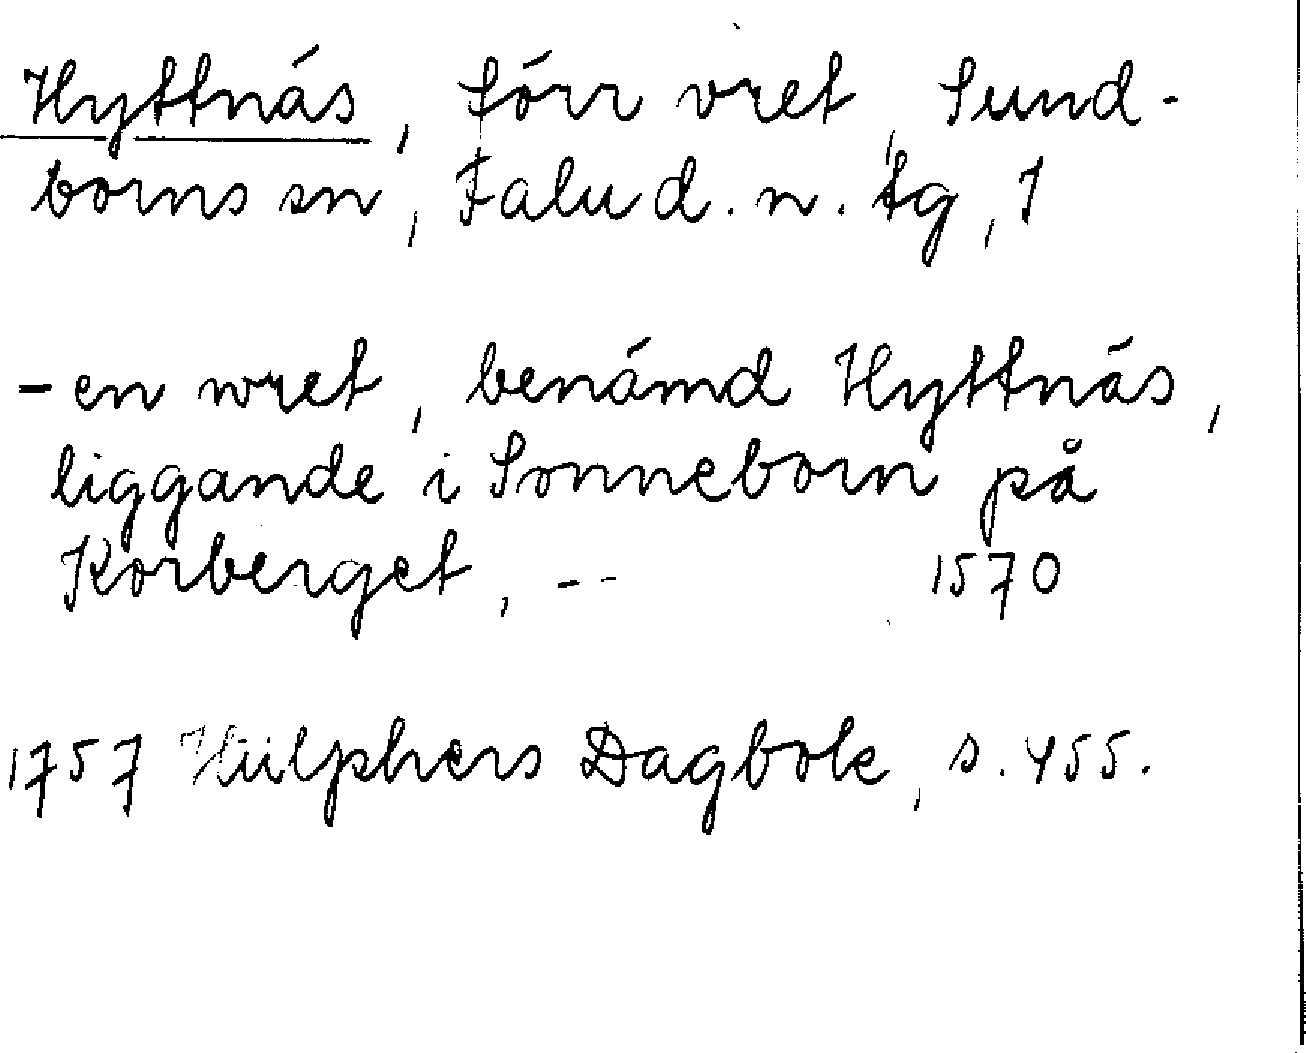 Hyttnäs, förr vret, Sund-
borns sn, Falu d. n. tg, 1
- en wret, benämd Hyttnäs,
liggande i Sonneborn på
Korberget, -- 1570
1757 Hülphers Dagbok, s. 455.